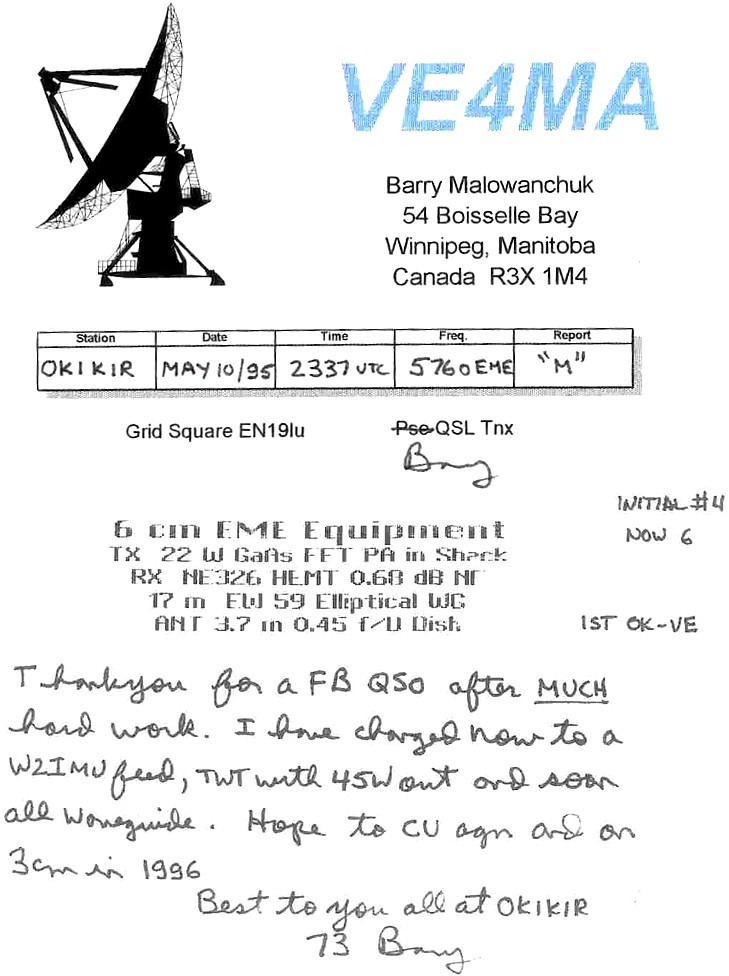 VE4MA
Barry Malowanchuk
54 Boisselle Bay
Winnipeg, Manitoba
Canada R3X 1M4
Station Date Time Freq. Report
OK1KIR MAY 10/95 2337 UTC 5760 EME "M"
Grid Square EN19lu Pse QSL Tnx
Barry
INITIAL #4
NOW 6
6 cm EME Equipment
TX 22 W GaAs FET PA in Shack
RX NE326 HEMT 0.68 dB NF
17 m EW 59 Elliptical WG
ANT 3.7 m 0.45 f/D Dish
1ST OK-VE
Thankyou for a FB QSO after MUCH
hard work. I have changed now to a
W2IMU feed, TWT with 45W out and soon
all Waveguide. Hope to CU agn and on
3cm in 1996
Best to you all at OK1KIR
73 Barry